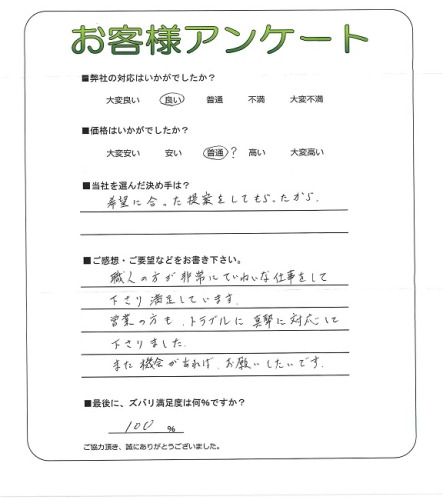 お客様アンケート
■弊社の対応はいかがでしたか?
大変良い 良い 普通 不満 大変不満
■価格はいかがでしたか?
大変安い 安い 普通? 高い 大変高い
■当社を選んだ決め手は?
希望に合った提案をしてもらったから.
■ご感想・ご要望などをお書き下さい。
職人の方が非常にていねいな仕事をして
下さり満足しています.
営業の方も、トラブルに真摯に対応して
下さりました.
また機会が有れば、お願いしたいです.
■最後に、ズバリ満足度は何%ですか?
100 %
ご協力頂き、誠にありがとうございました。